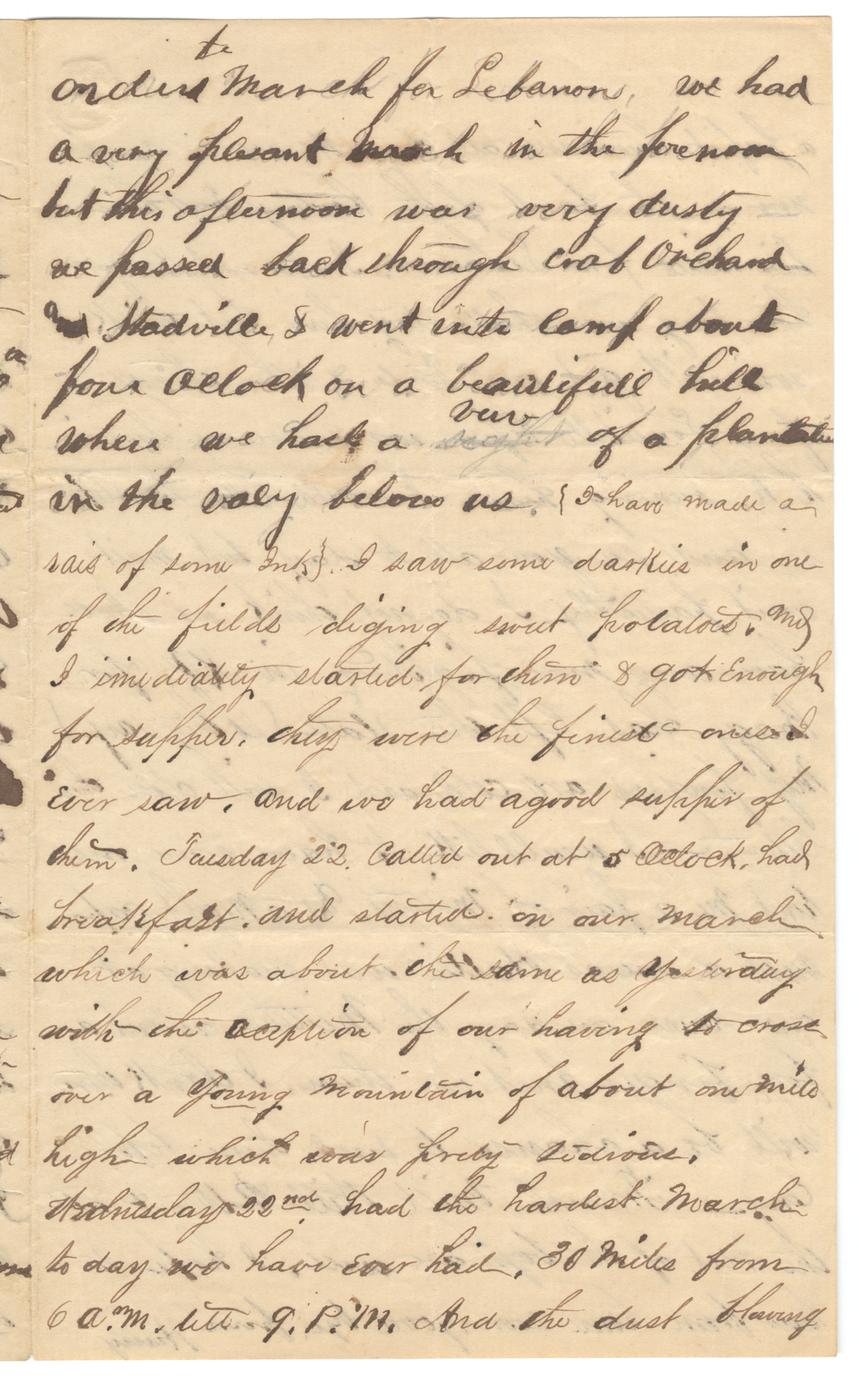 to
orders March for Lebanon, we had
a very plesant march in the forenoon
but this afternoon was very dusty
we passed back through crab Orchard
and Stadville, & went into camp about
four Oclock on a beautifull hill
veiw
where we had a sight of a plantation
in the valy below us. {I have made a
rais of some Ink}. I saw some darkies in one
of the fields diging sweet potatoes. And
I imediatly started for them & got Enough
for supper. they were the finest ones I
Ever saw. And we had a good supper of
them. Tuesday 22. Called out at 5 Oclock. had
breakfast. and started on our march
which was about the same as Yesterday
with the exception of our having to cross
over a Young Mountain of about one mile
high which was prety tedious.
Wednesday 22nd had the hardest March
to day we have Ever had. 30 Miles from
6 a.m. till 9. P. M. And the dust blowing